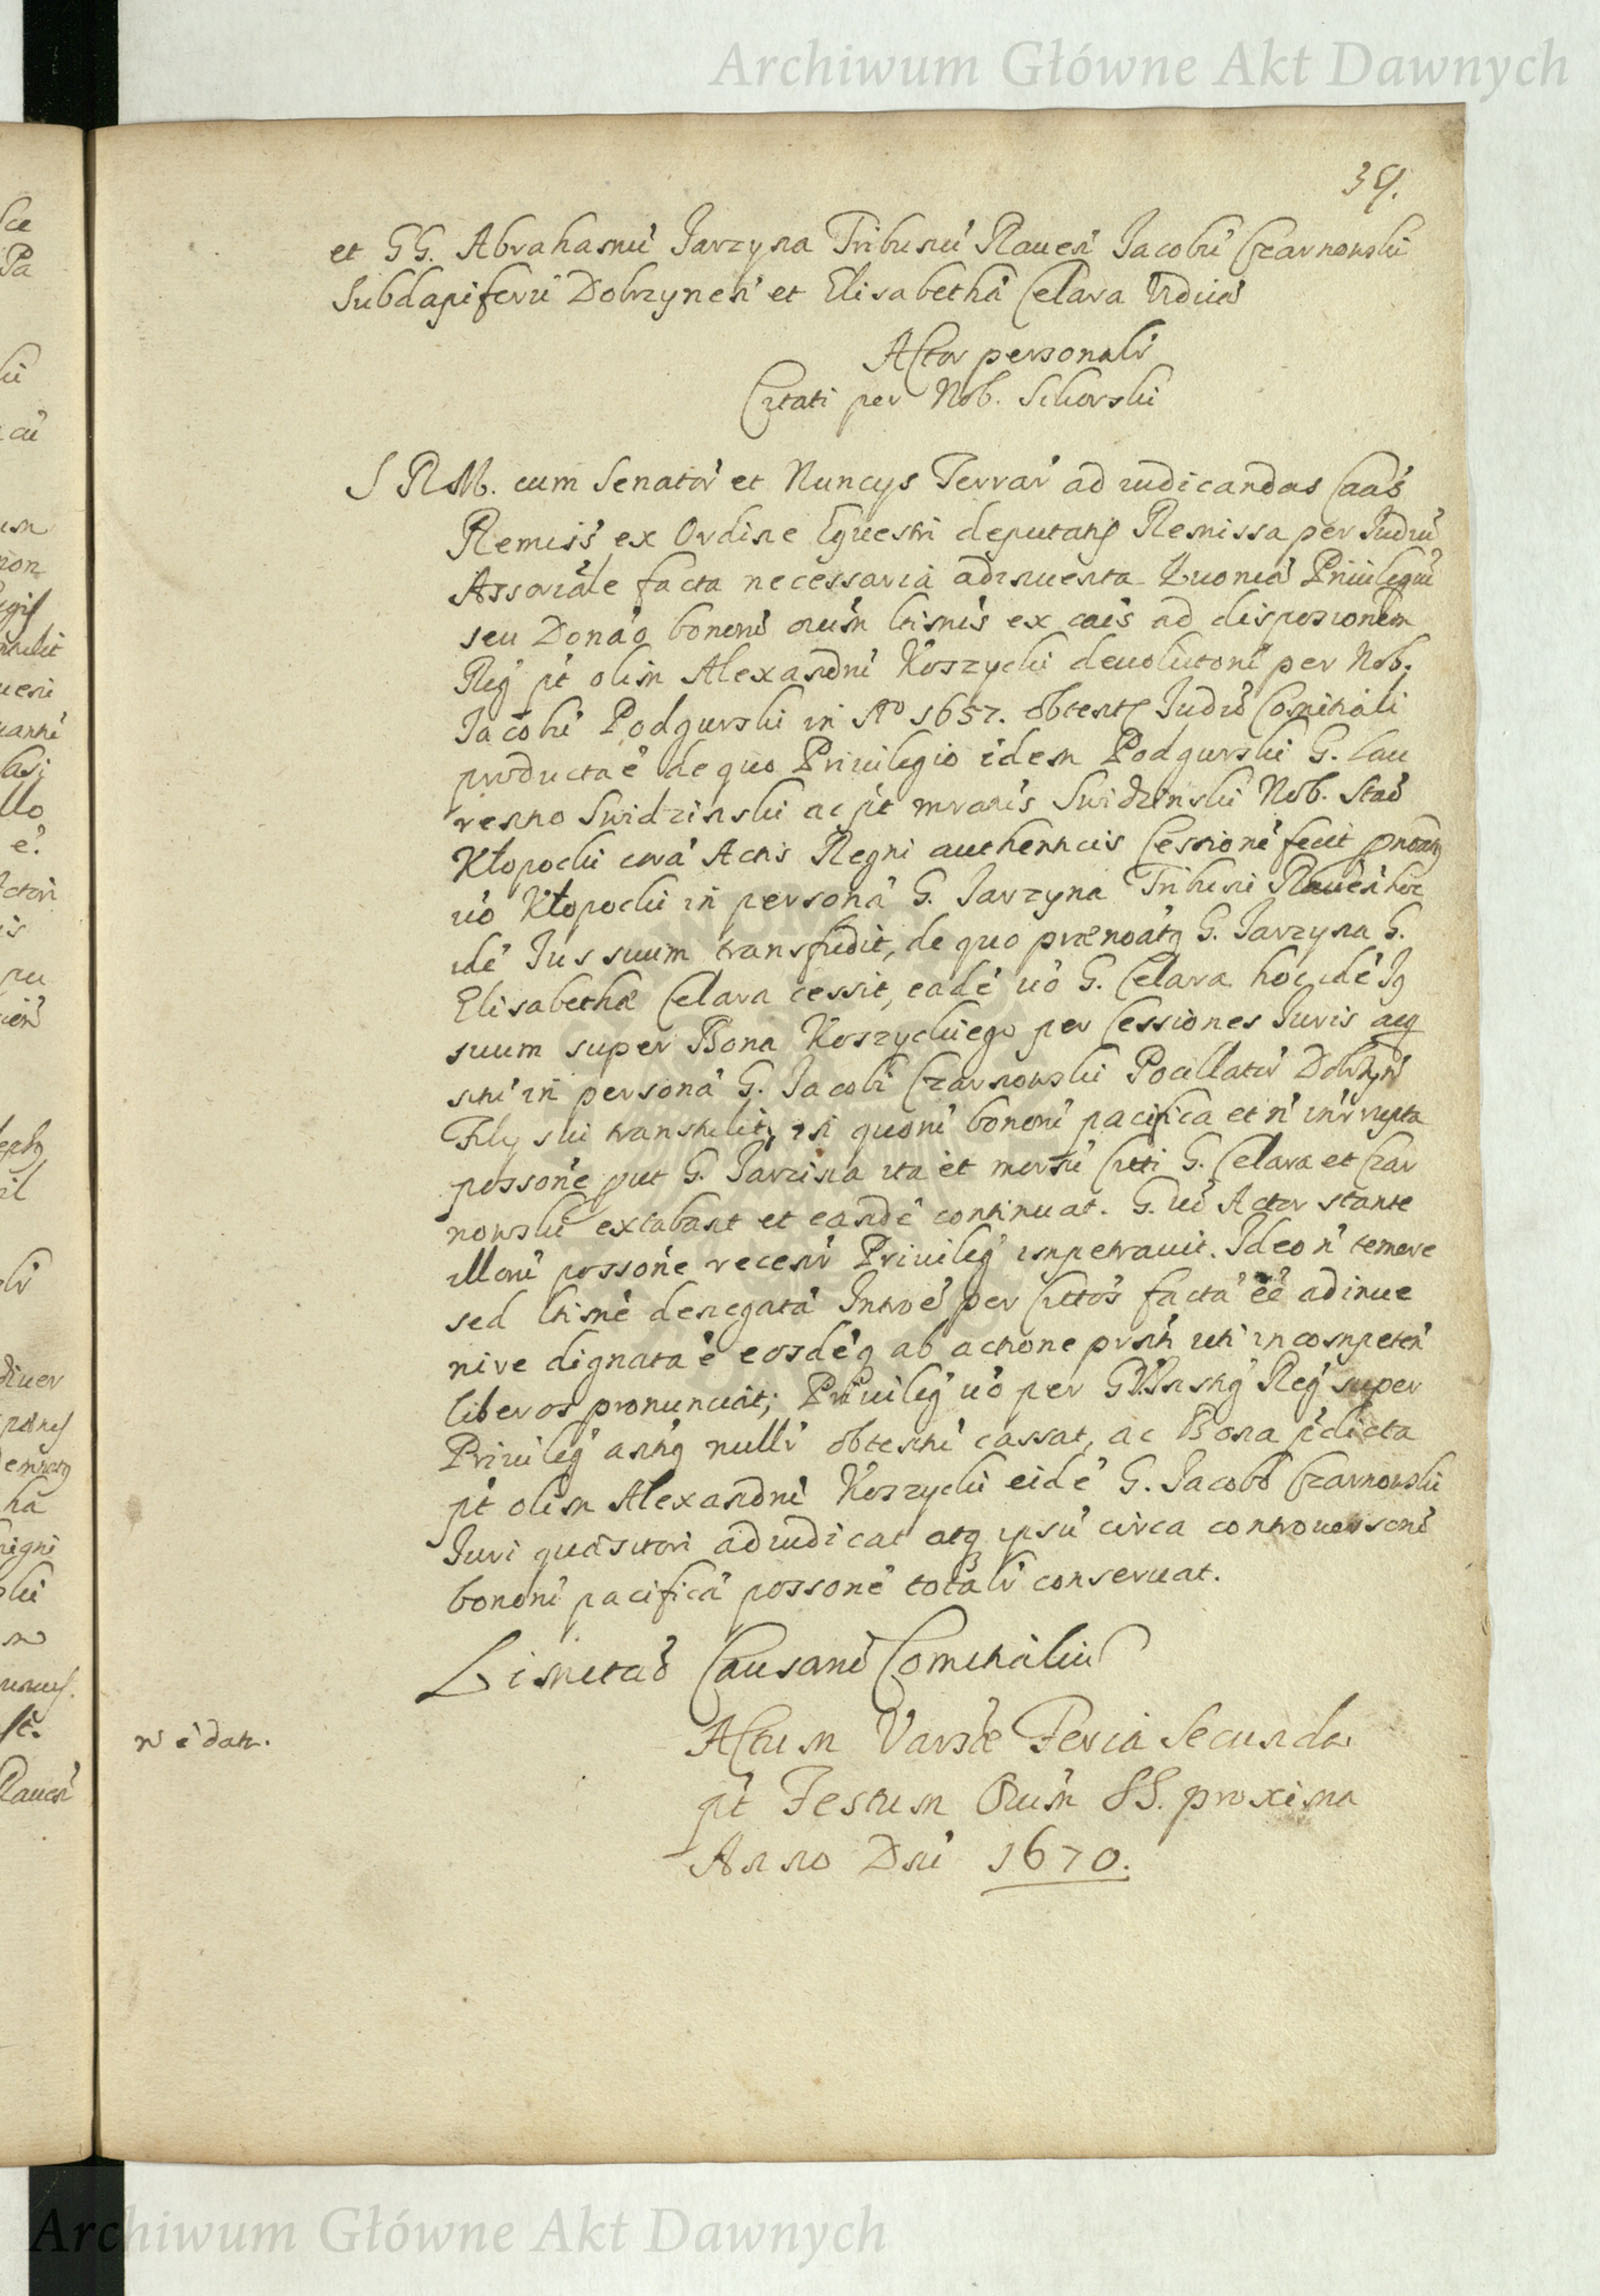 Archiwum Główne Akt Dawnych
39.
et GG. Abrahamū Jarzyna Tribunū Raueñ Jacobū Czarnowski
Subdapiferū Dobrzyneñ et Elisabethā Celara Viduā
Actor personalr
Citati per Nob. Sikorski
S R M. cum Senator et Nuncys Terrar ad iudicandas Caas
Remiss ex Ordine Equestri deputatis Remissa per Judiū
Assoriale facta necessaria adinuenta Quoniā Priuilegiū
seu Donao bonorū oium ltimis ex cais ad disposionem
Reg pt olim Alexandri Koszycki deuolutorū per Nob.
Jacobū Podgurski in Ao 1657. obtentū Judio Comitiali
producta ē de quo Priuilegio idem Podgurski G. Lau
rentio Swidzinski ac pt Swidzinski Nob. Stao
Kłopocki corā Actis Regni authenticis Cessionē fecit
uo Kłopocki in personā G. Jarzyna Tribuni Raueñ hoc
idē Jus suum transfudit, de quo prænoatq G. Jarzyna G.
Elisabethā Celara cessit, eadē uo G. Celara hoc idē Jq
suum super Bona Koszyckiego per Cessiones Juris acq
siti in personā G. Jacobi Czarnowski Pocillatr Dobrzyñ
Fily sui transtulit, in quorū bonorū pacifica et ñ inrrupta
possone put G. Jarzina ita et Citti G. Celara et Czar
nowski extabant et eandē continuat. G. uo Actor stante
illorū possone recentr Priuileg impetrauit. Ideo ñ temere
sed ltime denegatā Introē per Cittos factā eē adinue
nire dignata ē eosdēq ab actione prsnti uti incompeteñ
liberos pronunciat; Priuileg uo per G. Reg super
Priuileg antiq nullr obtentū cassat, ac Bona pdicta
pt olim Alexandri Koszycki eidē G. Jacobo Czarnowski
Juri quæsitori adiudicat atq ipsū circa controuersorū
bonorū pacificā possonē totalr conseruat.
Limitao Causarū Comitialiū
Actum Varsæ Feria Secunda
ñ ē datr.
pt Festum Oium SS. proxima
Anno Dni 1670.
Archiwum Główne Akt Dawnych